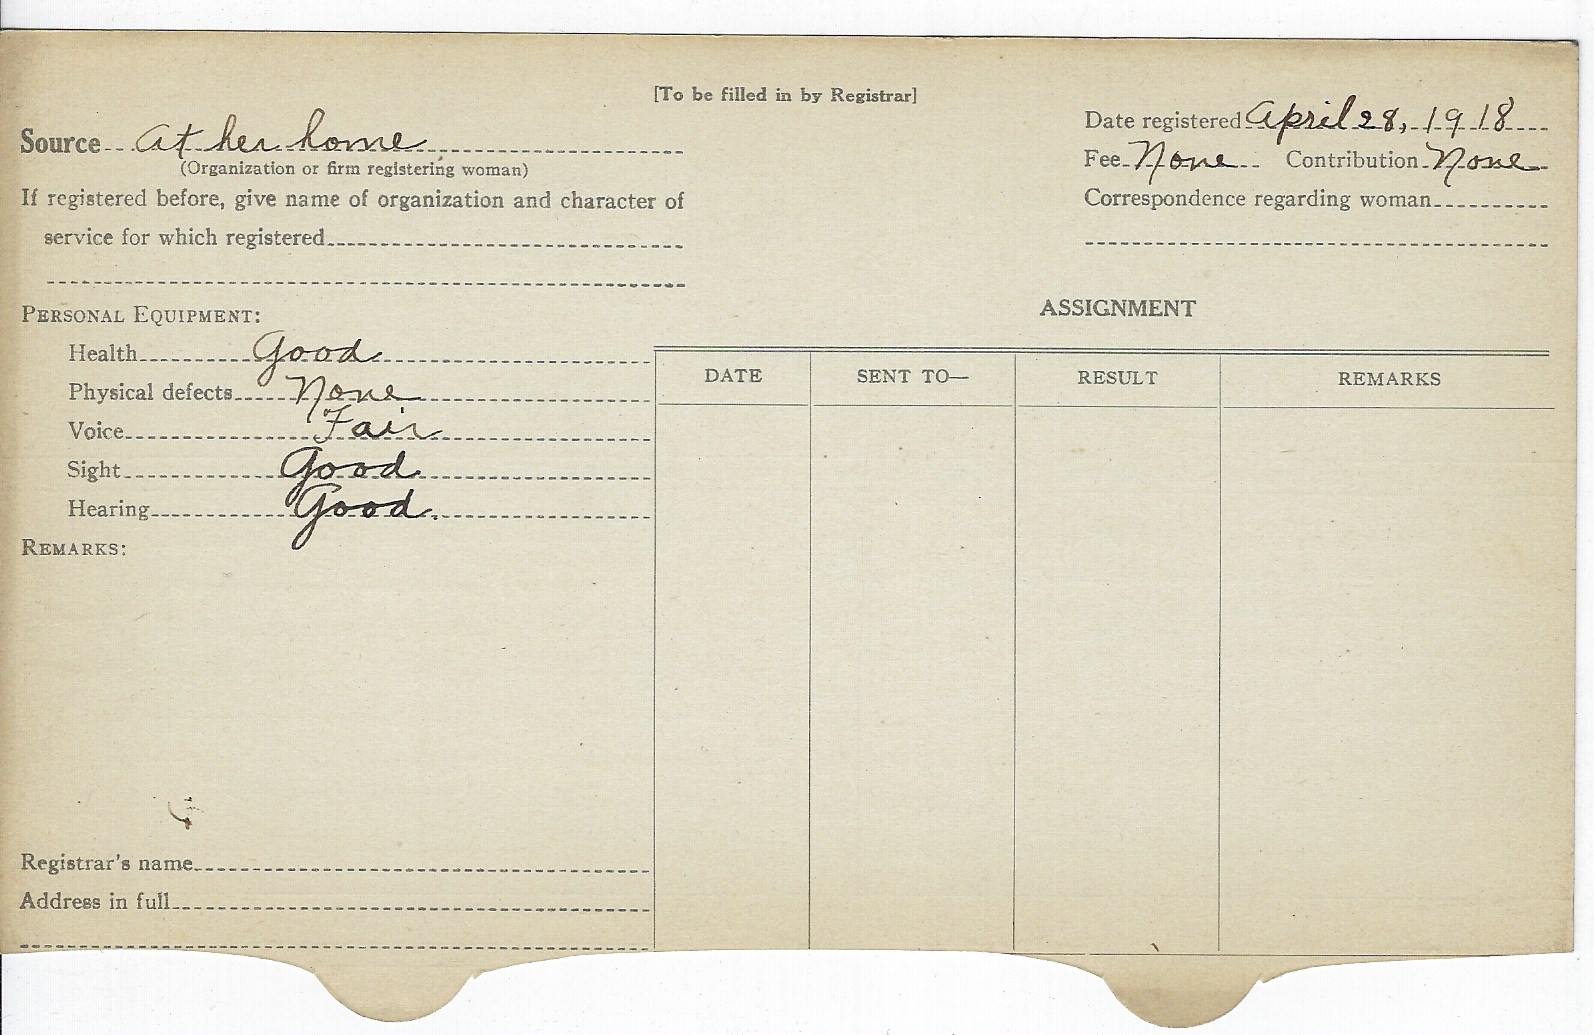 [To be filled in by Registrar]
Source At her home
(Organization or firm registering woman)
If registered before, give name of organization and character of
service for which registered
Date registered April 28, 1918
Fee None Contribution None
Correspondence regarding woman
PERSONAL EQUIPMENT:
Health Good
Physical defects None
Voice Fair
Sight Good
Hearing Good.
REMARKS:
Registrar's name
Address in full
ASSIGNMENT
DATE SENT TO— RESULT REMARKS